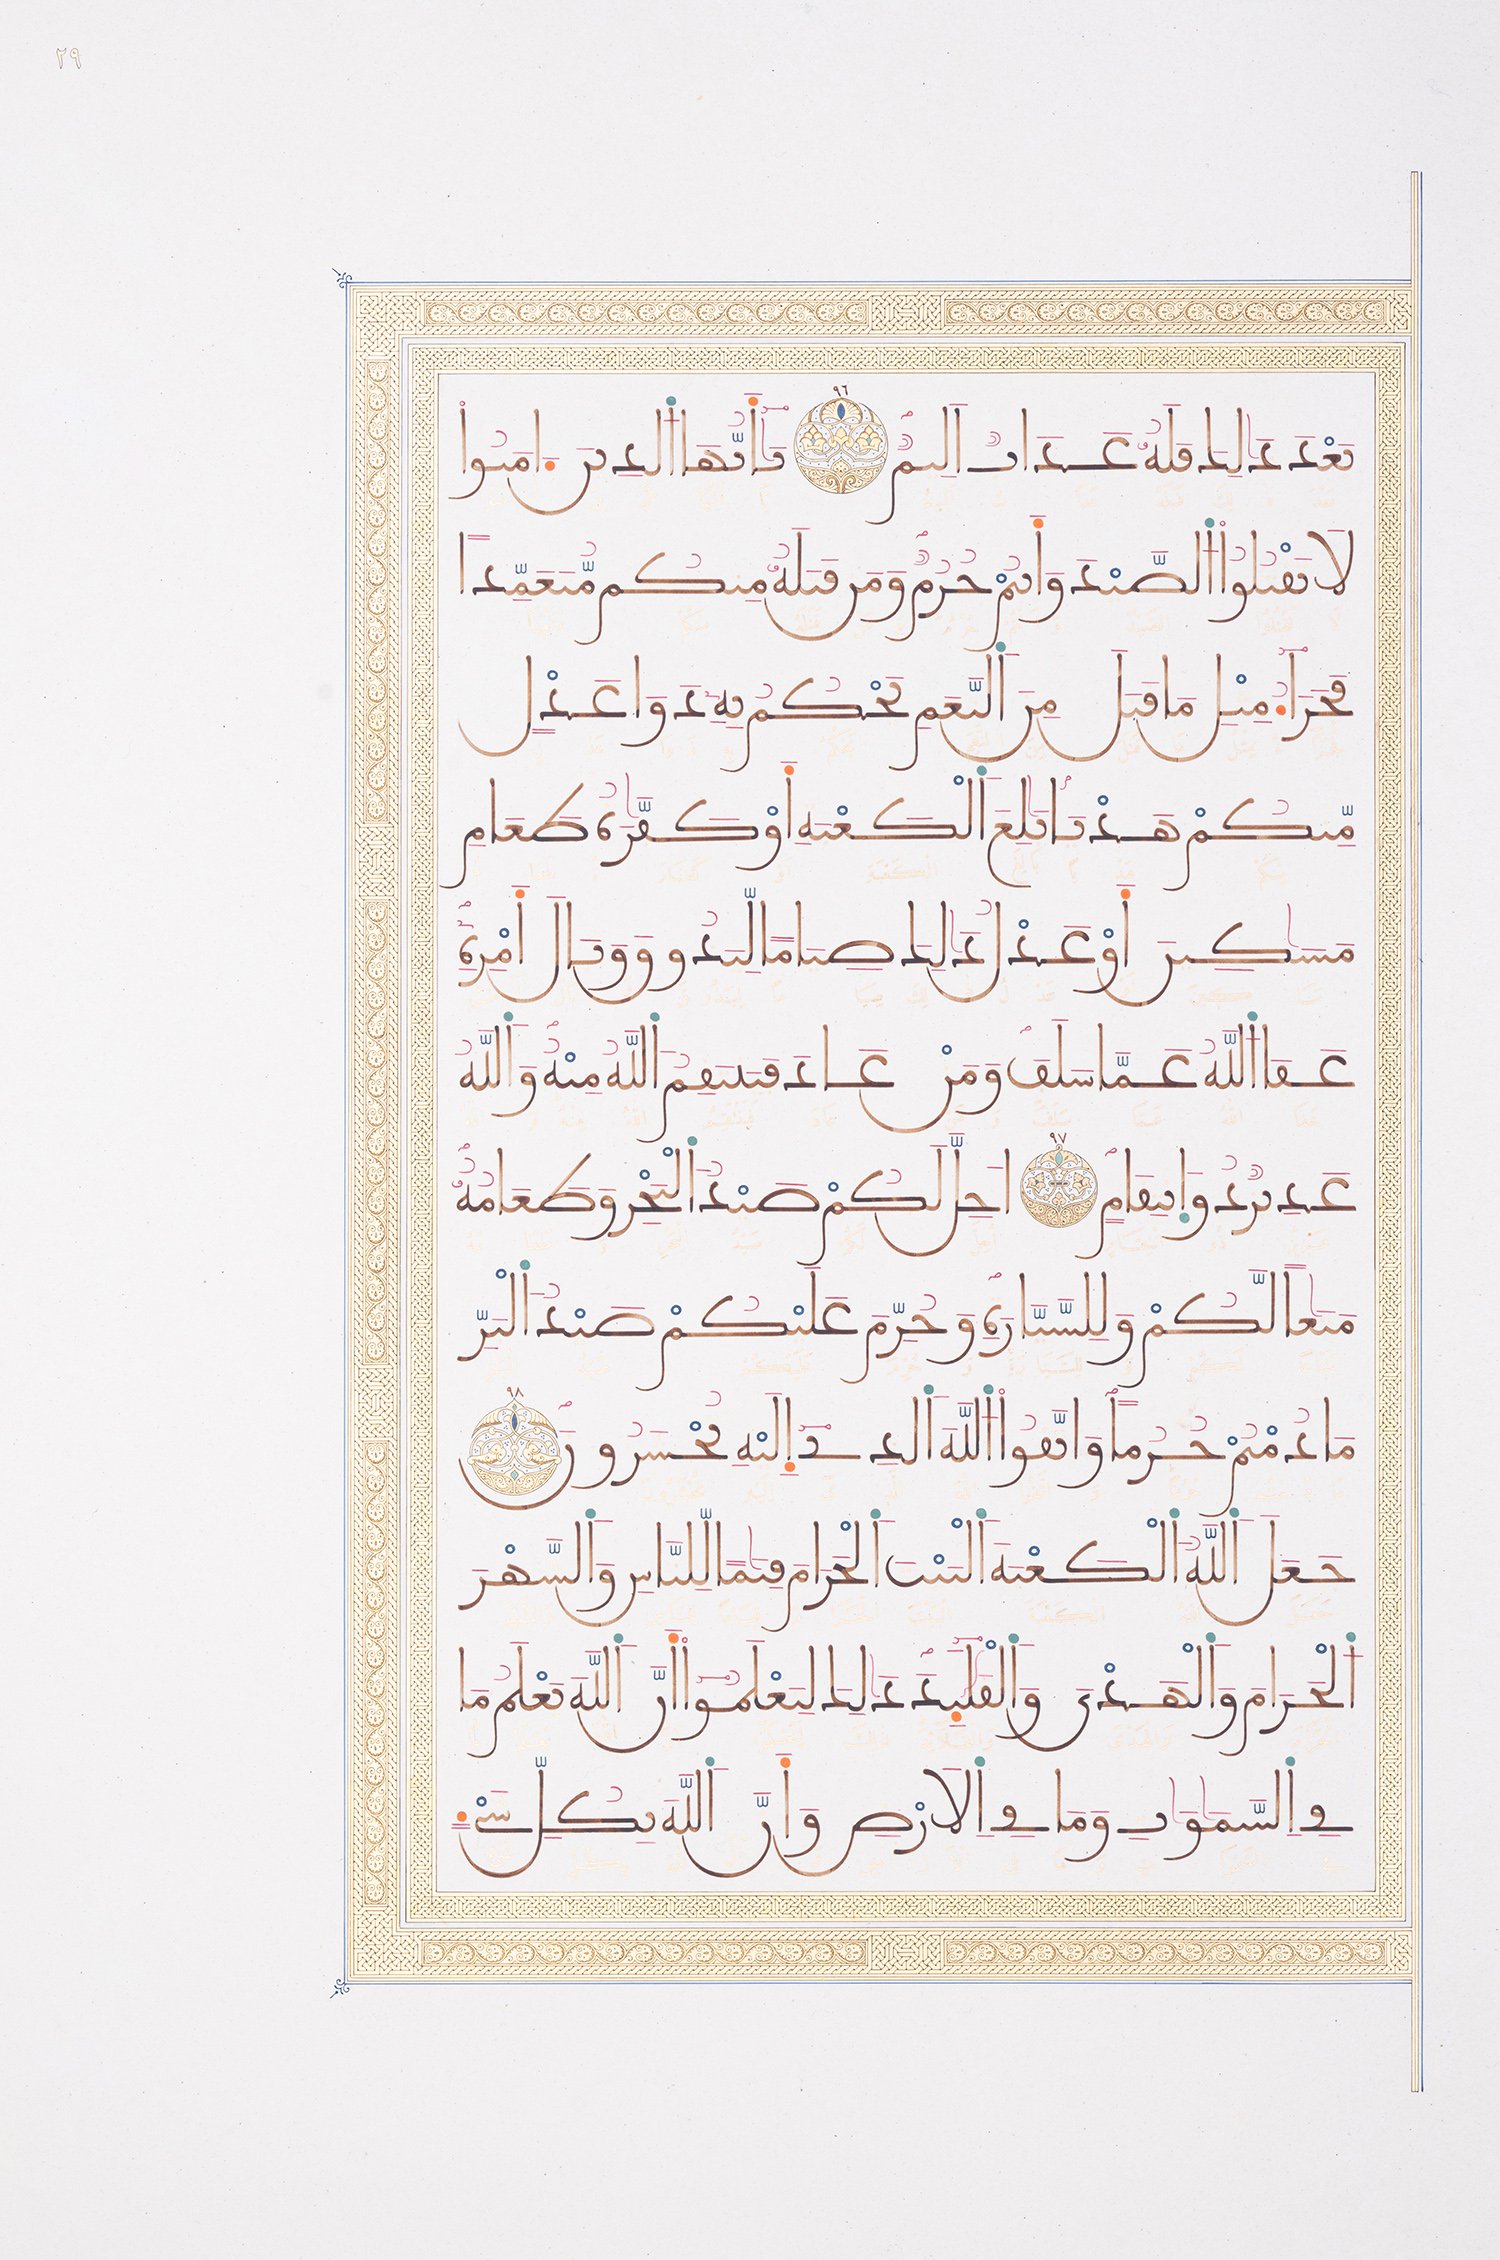 ٢٩
بَعْدَ ذَٰلِكَ فَلَهُۥ عَذَابٌ اَلِيمٌ ٩٦ يَٰٓأَيُّهَا اَلذِينَ ءَامَنُوا
لَا تَقْتُلُوا اُلصَّيْدَ وَأَنتُمْ حُرُمٌ وَمَن قَتَلَهُۥ مِنكُم مُّتَعَمِّداً
فَجَزَآءُ مِثْلِ مَا قَتَلَ مِنَ اَلنَّعَمِ يَحْكُمُ بِهِۦ ذَوَا عَدْلٍ
مِّنكُمْ هَدْياً بَٰلِغَ اَلْكَعْبَةِ أَوْ كَفَّٰرَةُ طَعَامِ
مَسَٰكِينَ أَوْ عَدْلُ ذَٰلِكَ صِيَاماً لِّيَذُوقَ وَبَالَ أَمْرِهِۦ
عَفَا اَللَّهُ عَمَّا سَلَفَ وَمَنْ عَادَ فَيَنتَقِمُ اُللَّهُ مِنْهُ وَاللَّهُ
عَزِيزٌ ذُو اُنتِقَامٍ ٩٧ احِلَّ لَكُمْ صَيْدُ اُلْبَحْرِ وَطَعَامُهُۥ
مَتَٰعاً لَّكُمْ وَلِلسَّيَّارَةِ وَحُرِّمَ عَلَيْكُمْ صَيْدُ اُلْبَرِّ
مَا دُمْتُمْ حُرُماً وَاتَّقُوا اُللَّهَ اَلذِےٓ إِلَيْهِ تُحْشَرُونَ ٩٨
جَعَلَ اَللَّهُ اُلْكَعْبَةَ اَلْبَيْتَ اَلْحَرَامَ قِيَٰماً لِّلنَّاسِ وَالشَّهْرَ
اَلْحَرَامَ وَالْهَدْيَ وَالْقَلَٰٓئِدَ ذَٰلِكَ لِتَعْلَمُوٓا أَنَّ اَللَّهَ يَعْلَمُ مَا
فِے اِلسَّمَٰوَٰتِ وَمَا فِے اِلَارْضِ وَأَنَّ اَللَّهَ بِكُلِّ شَےْءٍ